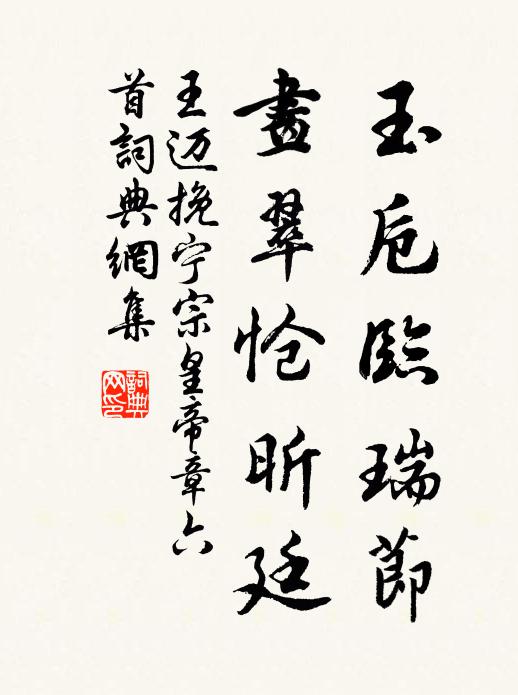 玉卮臨瑞節
畫翣怆昕廷
王迈挽宁宗皇帝章六
首詞典網集
詞典
网印